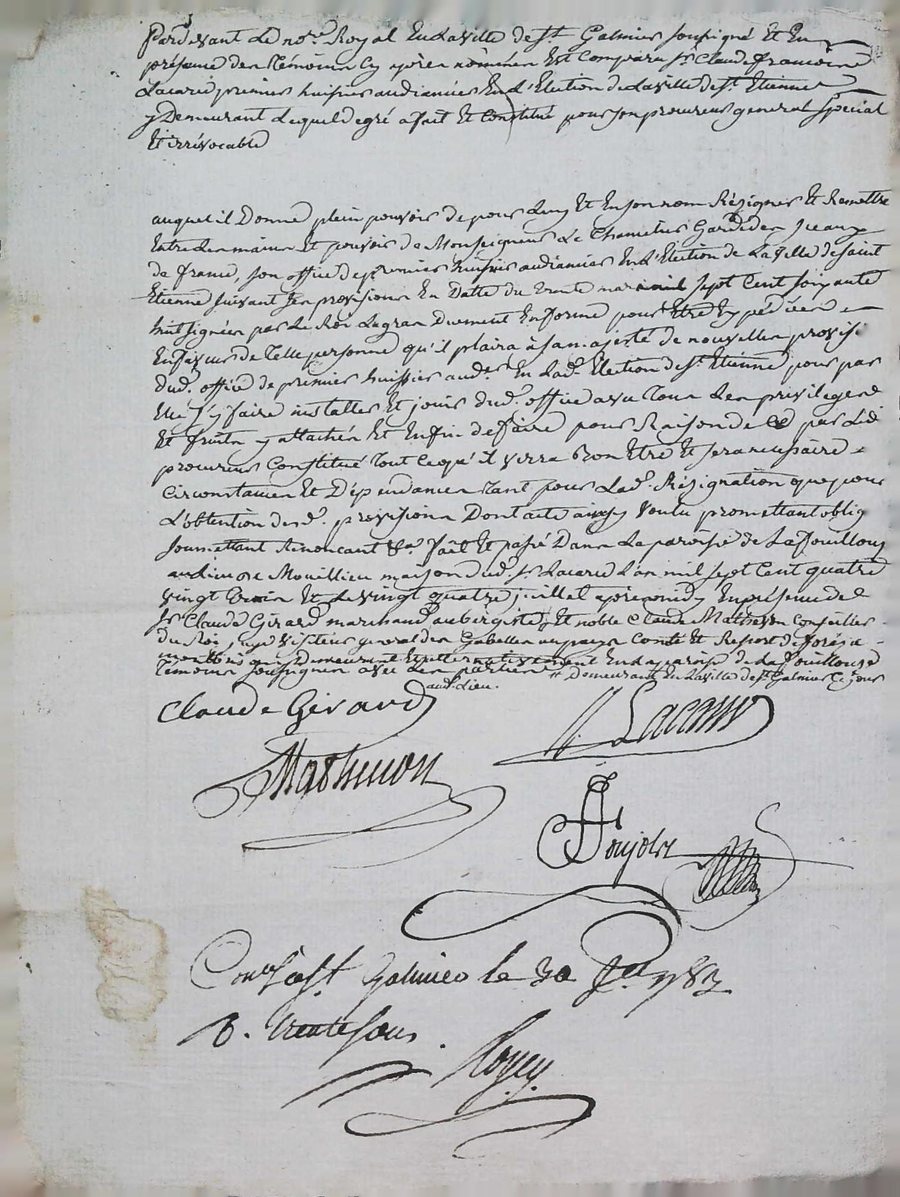 Pardevant Le nore. Royal En La ville de st. Galmier soussigné Et En
présance des Témoins Cy après nommés Est comparu sr. Claude francois
Lacarié premier huissier audiancier En L'Election de La ville de st. Etienne
y Demeurant Lequel de gré a fait Et Constitué pour son procureur general spécial
Et irrévocable
auquel il Donne plein pouvoir de pour Luy Et En son nom Résigner Et Remettre
Entre Les mains Et pouvoir de Monseigneur Le Chancelier Garde des sceaux
de france, son office de premier huissier audiancier En L'Election de La ville de saint
Etienne suivant ses provisions En Datte du trente mars mil sept Cent soixante
huit signées par Le Roi Le grand Duement En forme pour Etre Expédiées
En faveur de Telle personne qu'il plaira à sa majesté de nouvelles provis.
dud. office de premier huissier audr. En Lad. Election de st. Etienne pour par
Elle s'y faire installer Et jouir dud. office avec Tous Les privileges
Et fruits y attachés Et Enfin de faire pour Raison de Ce par Led.
procureur Constitué Tout Ce qu'il verra Bon Etre Et sera nécessaire
Circonstances Et Dépendances Tant pour Lad. Résignation que pour
L'obtention desd. provisions Dont acte ainsy voulu promettant oblig
soumettant Renoncant &a. fait Et passé Dans La paroisse de La fouillouse
au Lieu de Mouillieu maison dud. sr. Lacarié L'an mil sept Cent quatre
vingt trois Et Le vingt quatre juillet après midy En présence de
sr Claude Girard marchand aubergiste, Et noble Claude Mathevon Conseiller
du Roi, visiteur general des Gabelles au pays Comté Et Ressort de forés a
Demeurant En La paroisse de La fouillouse
Témoins soussignés avec Les parties # Demeurant En La ville de st. Galmier Ce jour
aud. Lieu.
Claude Girard
Lacarié
Mathevon
Poujols
Conlé à st. Galmier le 30 Jet 1783
R. trente sous.
Royey